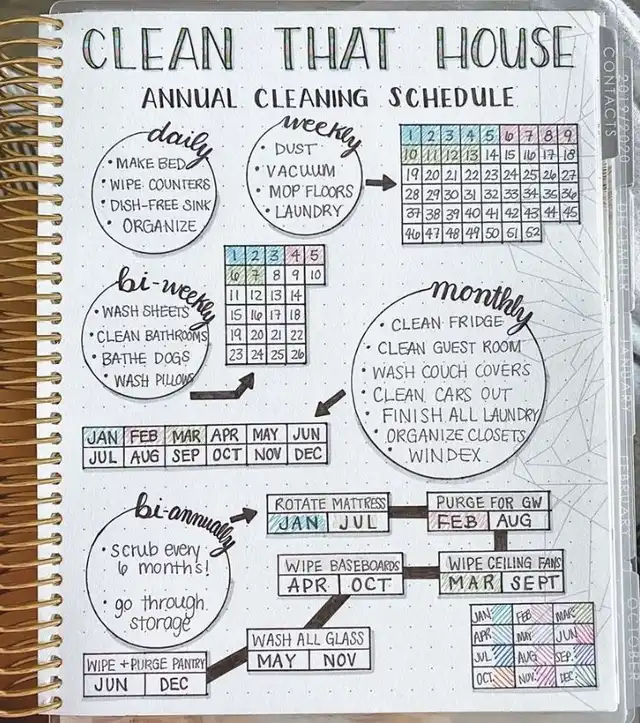 CLEAN THAT HOUSE
ANNUAL CLEANING SCHEDULE
daily
• MAKE BED
• WIPE COUNTERS
• DISH-FREE SINK
• ORGANIZE
weekly
• DUST
• VACUUM
• MOP FLOORS
• LAUNDRY
1 2 3 4 5 6 7 8 9
10 11 12 13 14 15 16 17 18
19 20 21 22 23 24 25 26 27
28 29 30 31 32 33 34 35 36
37 38 39 40 41 42 43 44 45
46 47 48 49 50 51 52
bi-weekly
• WASH SHEETS
• CLEAN BATHROOMS
• BATHE DOGS
• WASH PILLOWS
1 2 3 4 5
6 7 8 9 10
11 12 13 14
15 16 17 18
19 20 21 22
23 24 25 26
monthly
• CLEAN FRIDGE
• CLEAN GUEST ROOM
• WASH COUCH COVERS
• CLEAN CARS OUT
• FINISH ALL LAUNDRY
• ORGANIZE CLOSETS
• WINDEX
JAN FEB MAR APR MAY JUN
JUL AUG SEP OCT NOV DEC
bi-annually
• scrub every
6 months!
• go through
storage
ROTATE MATTRESS
JAN JUL
PURGE FOR GW
FEB AUG
WIPE BASEBOARDS
APR OCT
WIPE CEILING FANS
MAR SEPT
WASH ALL GLASS
MAY NOV
WIPE + PURGE PANTRY
JUN DEC
JAN FEB MAR
APR MAY JUN
JUL AUG SEP
OCT NOV DEC
CONTACTS
2019/2020
DECEMBER
JANUARY
FEBRUARY
OCTOBER